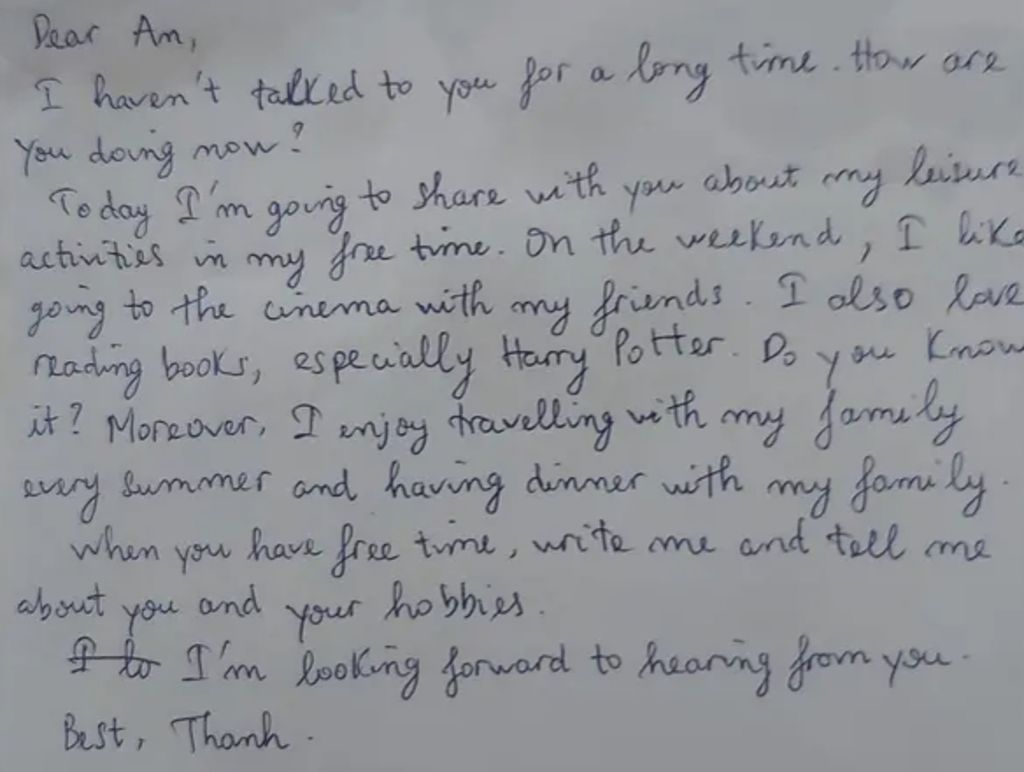 Dear An,
I haven't talked to you for a long time. How are
you doing now?
Today I'm going to share with you about my leisure
activities in my free time. On the weekend, I like
going to the cinema with my friends. I also love
reading books, especially Harry Potter. Do you know
it? Moreover, I enjoy travelling with my family
every summer and having dinner with my family.
When you have free time, write me and tell me
about you and your hobbies.
I lo I'm looking forward to hearing from you.
Best, Thanh.